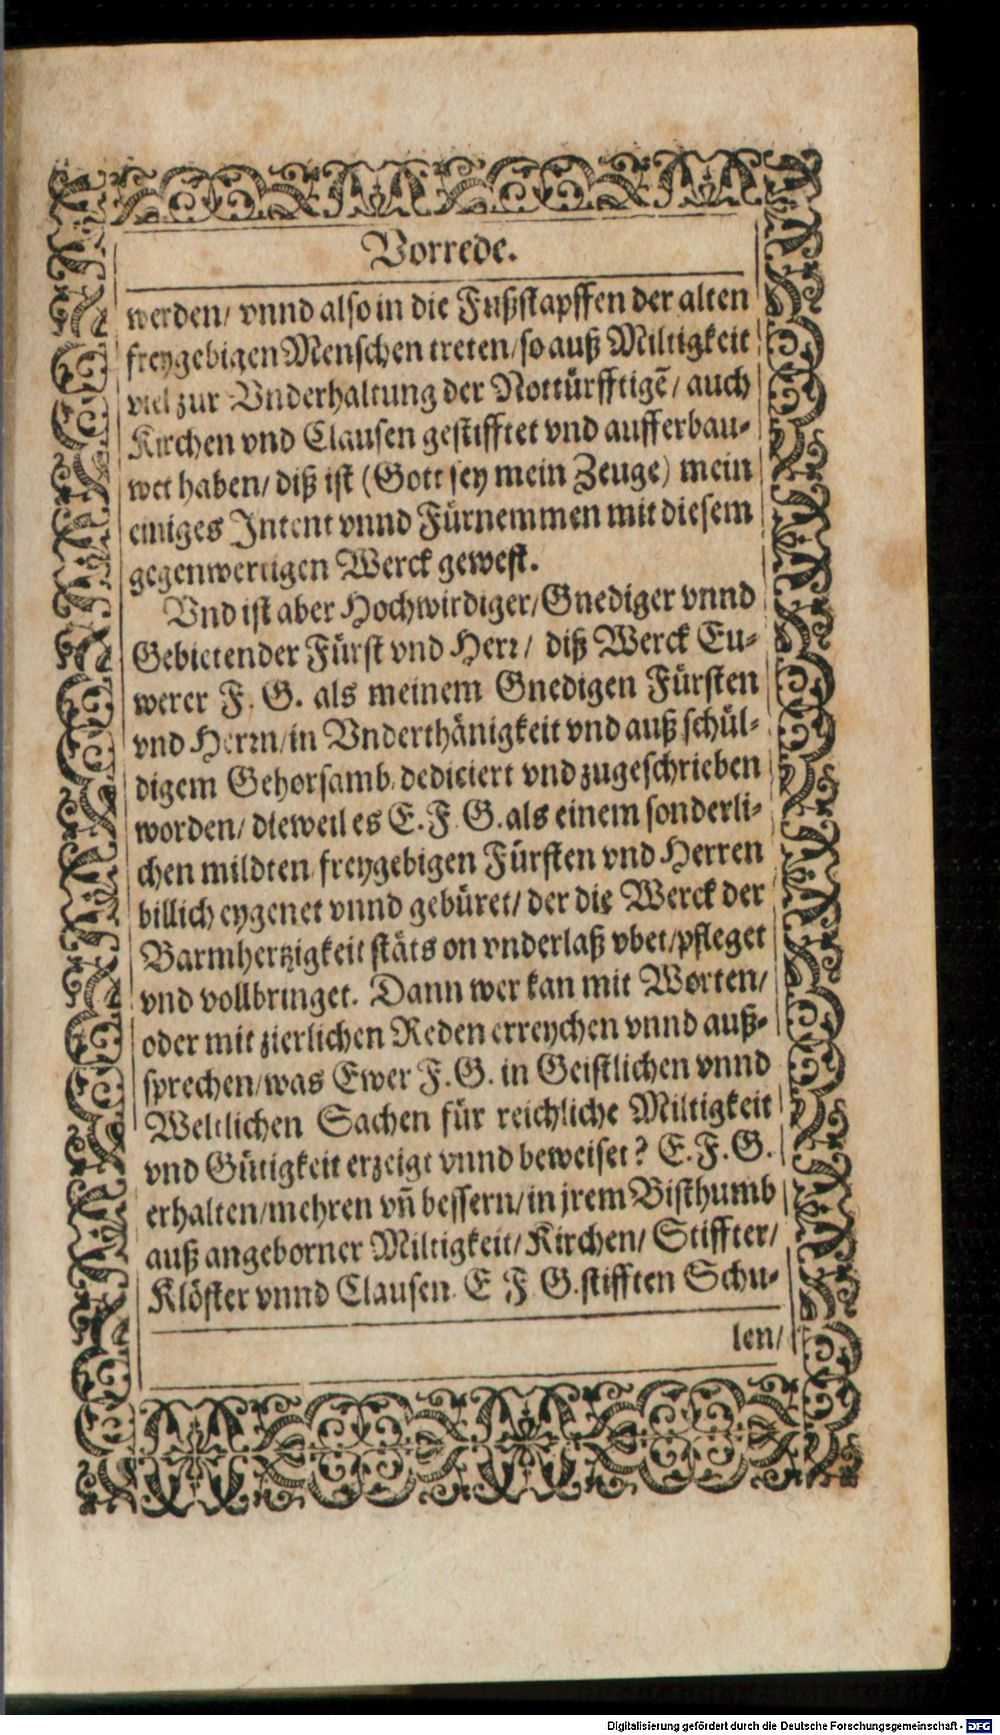 Vorrede.
werden/ vnnd also in die Fußstapffen der alten
freygebigen Menschen treten/ so auß Miltigkeit
viel zur Vnderhaltung der Nottürfftigẽ/ auch
Kirchen vnd Clausen gestifftet vnd aufferbau-
wet haben/ diß ist (Gott sey mein Zeuge) mein
einiges Intent vnnd Fürnemmen mit diesem
gegenwertigen Werck gewest.
Vnd ist aber Hochwirdiger/ Gnediger vnnd
Gebietender Fürst vnd Herr/ diß Werck Eu-
werer F. G. als meinem Gnedigen Fürsten
vnd Herrn/ in Vnderthänigkeit vnd auß schül-
digem Gehorsamb/ dediciert vnd zugeschrieben
worden/ dieweil es E. F. G. als einem sonderli-
chen mildten/ freygebigen Fürsten vnd Herren
billich eygenet vnnd gebüret/ der die Werck der
Barmhertzigkeit stäts on vnderlaß vbet/ pfleget
vnd vollbringet. Dann wer kan mit Worten/
oder mit zierlichen Reden erreychen vnnd auß-
sprechen/ was Ewer F. G. in Geistlichen vnnd
Weltlichen Sachen für reichliche Miltigkeit
vnd Gütigkeit erzeigt vnnd beweiset? E. F. G.
erhalten/ mehren vñ bessern/ in jrem Bisthumb
auß angeborner Miltigkeit/ Kirchen/ Stiffter/
Klöster vnnd Clausen. E F G. stifften Schu-
len/
Digitalisierung gefördert durch die Deutsche Forschungsgemeinschaft - DFG